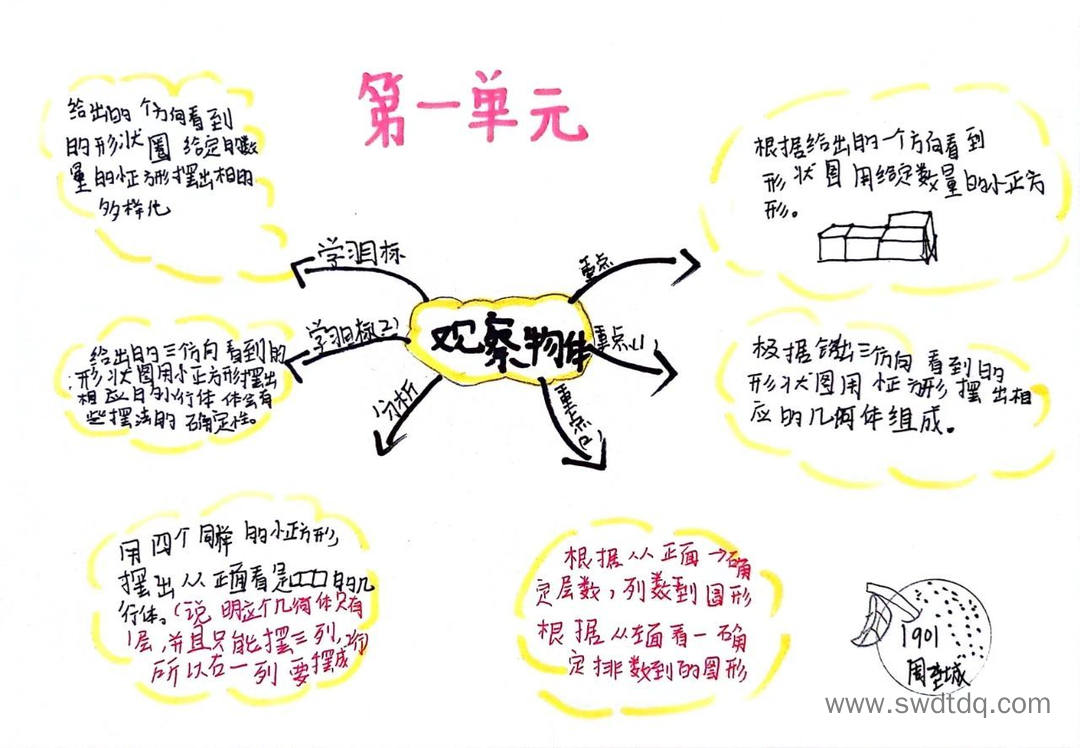 第一单元
给出的个方向看到
的形状圈给定的数
量的小正方形摆出相的
多样化
学习目标
重点
根据给出的一个方向看到
形状图用给定数量的小正方
形。
学习目标2)
给出的三个方向看到的
形状图用小正方形摆出
相应的几何体体会有
些摆法的确定性。
观察物体
重点(1)
根据给出三个方向看到的
形状图用小正方形摆出相
应的几何体组成。
分析
重点
用四个同样的小正方形,
摆出从正面看是□□□的几
行体。(说明这个几何体只有
1层,并且只能摆三列,
所以右一列要摆成
根据从正面→确
定层数,列数到圆形
根据从左面看一确
定排数到的图形
1901
周
城
www.swdtdq.com